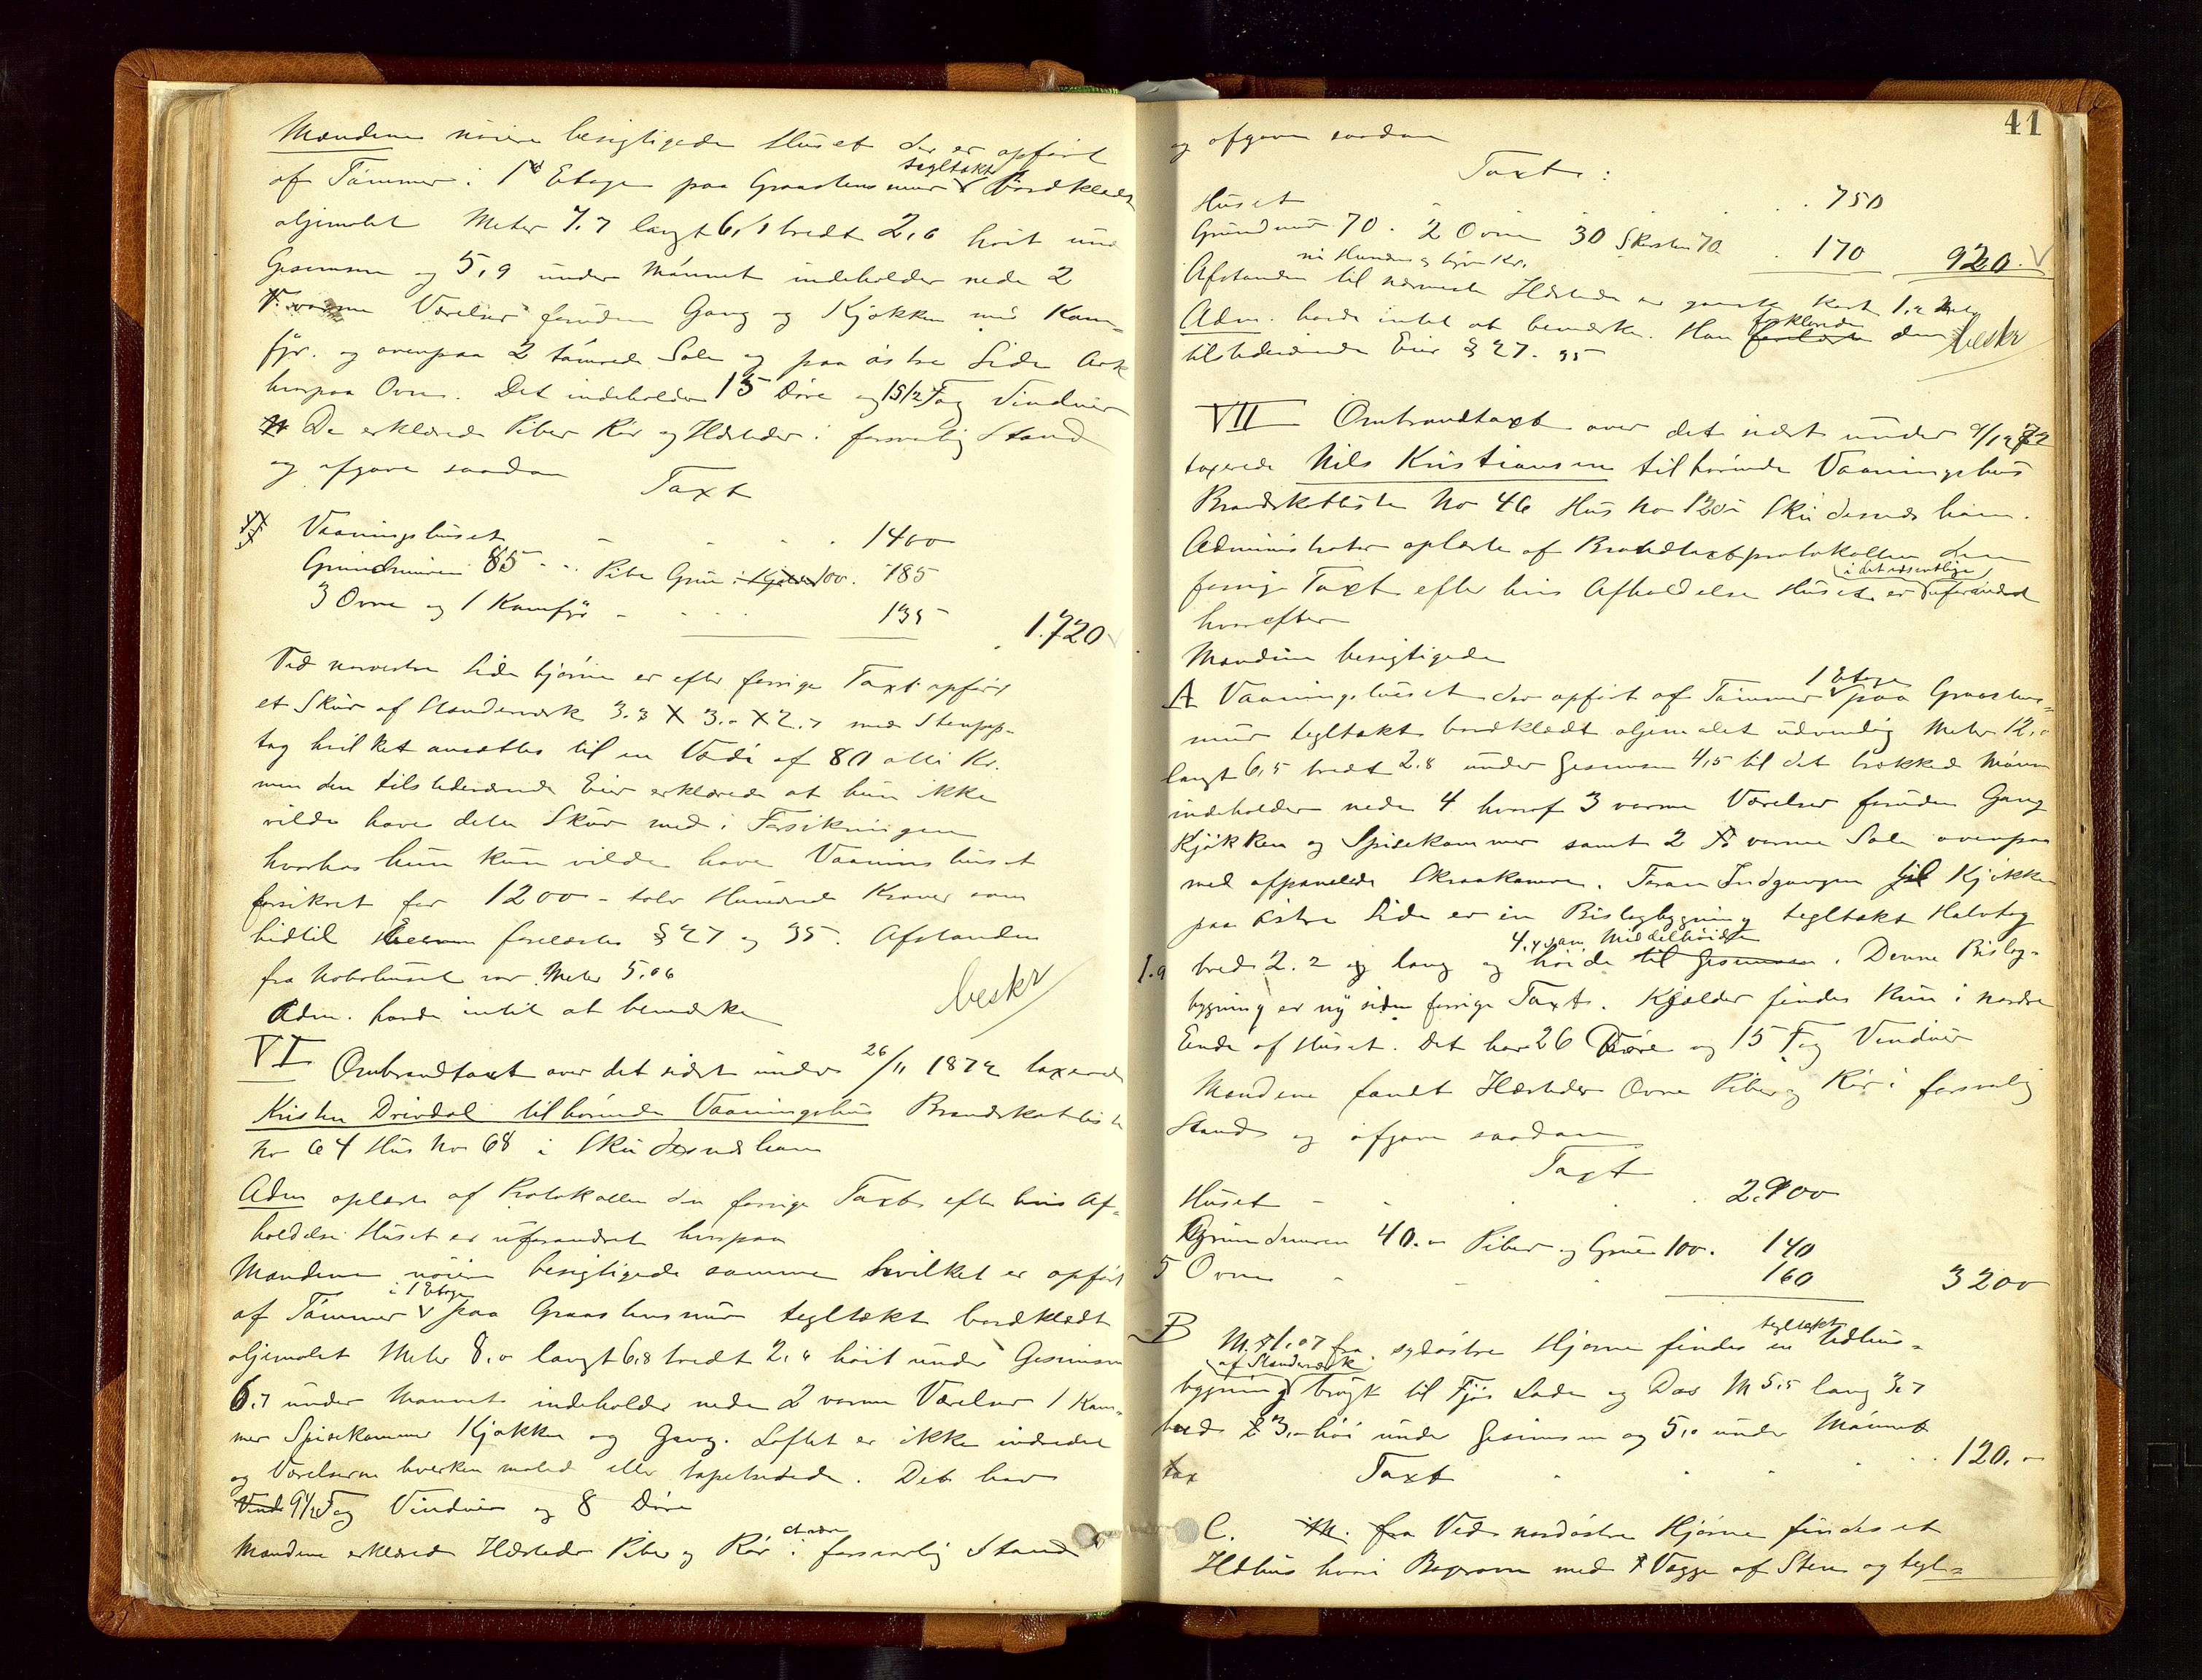 Mændene nöiere besigtigede Huset der er opfört
af Tömmer i 1ste Etage paa Graastensmur tegltækt Bordklædt
oljemalet Meter 7.7 langt 6,1 bredt 2,6 höit under
Gesimsen og 5,9 under Mönnet indeholder nede 2
varme Værelser foruden Gang og Kjökken med Kom-
fyr. og ovenpaa 2 tömrede Sale og paa östre Side Ark
hvorpaa Ovn. Det indeholder 13 Döre og 15 1/2 Fag Vinduer
De erklærede Piber Rör og Ildsteder i forsvarlig Stand
og afgave saadan
Taxt
Vaaningshuset - - - 1400
Grundmuren 85 - Pibe Grue i Kjæld 100. 185
3 Ovne og 1 Komfyr - - - 135
1.720
Ved nordvestre Side hjörne er efter forrige Taxt opfört
et Skur af Standerværk 3.3 X 3.- X 2.7 med Stenpap-
tag hvilket ansættes til en Værdi af 80 otti Kr.
men den tilstedeværende Eier erklærede at hun ikke
vilde have dette Skur med i Forsikringen
hvorhos hun kun vilde have Vaaningshuset
forsikret for 1200 - tolv Hundrede Kroner som
hidtil forelæstes § 27 og 35. Afstanden
fra Nabohuset var Meter 5.06
Adm. havde intet at bemærke
beskr
VI Ombrandtaxt over det sidst under 26/11 1872 taxerede
Kristen Drivdal tilhörende Vaaningshus Brandskatliste
No 64 Hus No 68 i Skudesneshavn
Adm oplæste af Protokollen den forrige Taxt efter hvis Af-
holdelse Huset er uforandret hvorpaa
Mændene nöiere besigtigede samme hvilket er opfört
af Tömmer i 1 Etage paa Graastensmur tegltækt bordklædt
oljemalet Meter 8,0 langt 6,8 bredt 2,6 höit under Gesimsen
6.7 under Mönnet indeholder nede 2 varme Værelser 1 Kam-
mer Spisekammer Kjökken og Gang. Loftet er ikke indredet
og Værelserne hverken malede eller tapetserede. Det har
Vind 9 1/2 Fag Vinduer og 8 Döre
Mændene erklærede Ildsteder Piber og Rör i forsvarlig Stand
41
og afgave saadan
Taxt:
Huset - - - 750
Grundmur 70. 2 Ovne 30 Skorsten 70 170 920.
ni Hundre og tyve Kr.
Afstanden til nærmeste Ildsted er ganske kort 1,2 Meter
Adm. havde intet at bemærke. Han forklarede forelæste den
tilstedeværende Eier § 27. 35
beskr
VII Ombrandtaxt over det sidst under 9/12 72
taxerede Nils Kristiansen tilhörende Vaaningshus
Brandskatliste No 46 Hus No 120 i Skudesneshavn.
Administrator oplæste af Brandtaxtprotokollen den
forrige Taxt efter hvis Afholdelse Huset er i det væsentlige uforandret
hvorefter
Mændene besigtigede
A Vaaningshuset der opfört af Tömmer 1 Etage paa Graastens-
mur tegltækt bordklædt oljemalet udvendig Meter 12,0
langt 6,5 bredt 2.8 under Gesimsen 4,5 til det brækkede Mönne
indeholder nede 4 hvoraf 3 varme Værelser foruden Gang
Kjökken og Spisekammer samt 2 varme Sale ovenpaa
med afpanelede Skraakamre. Foran Indgangen til Kjökken
paa östre Side er en Bislagbygning tegltækt Halvtag
1.9 bred 2.2 og lang og höide til Gesimsen 4.4 Middelhöide. Denne Bislag-
bygning er ny siden forrige Taxt. Kjælder findes kun i nordre
Ende af Huset. Det har 26 Döre og 15 Fag Vinduer
Mændene fandt Ildsteder Ovne Piber og Rör i forsvarlig
Stand og afgave saadan
Taxt
Huset - - - 2.900
Grundmuren 40.- Piber og Grue 100. 140
5 Ovne - - - 160 3200
B M. 1.07 fra sydöstre Hjörne findes en tegltækt Udhus-
bygning af Standerværk brugt til Fjös Lade og Das M 5.5 lang 3.7
bred 3,- höi under Gesimsen og 5,0 under Mönnet
tax Taxt - - - 120.-
C. M. fra Ved nordöstre Hjörne findes et
Ildhus hvori Bagerovn med Vægge af Sten og tegl-